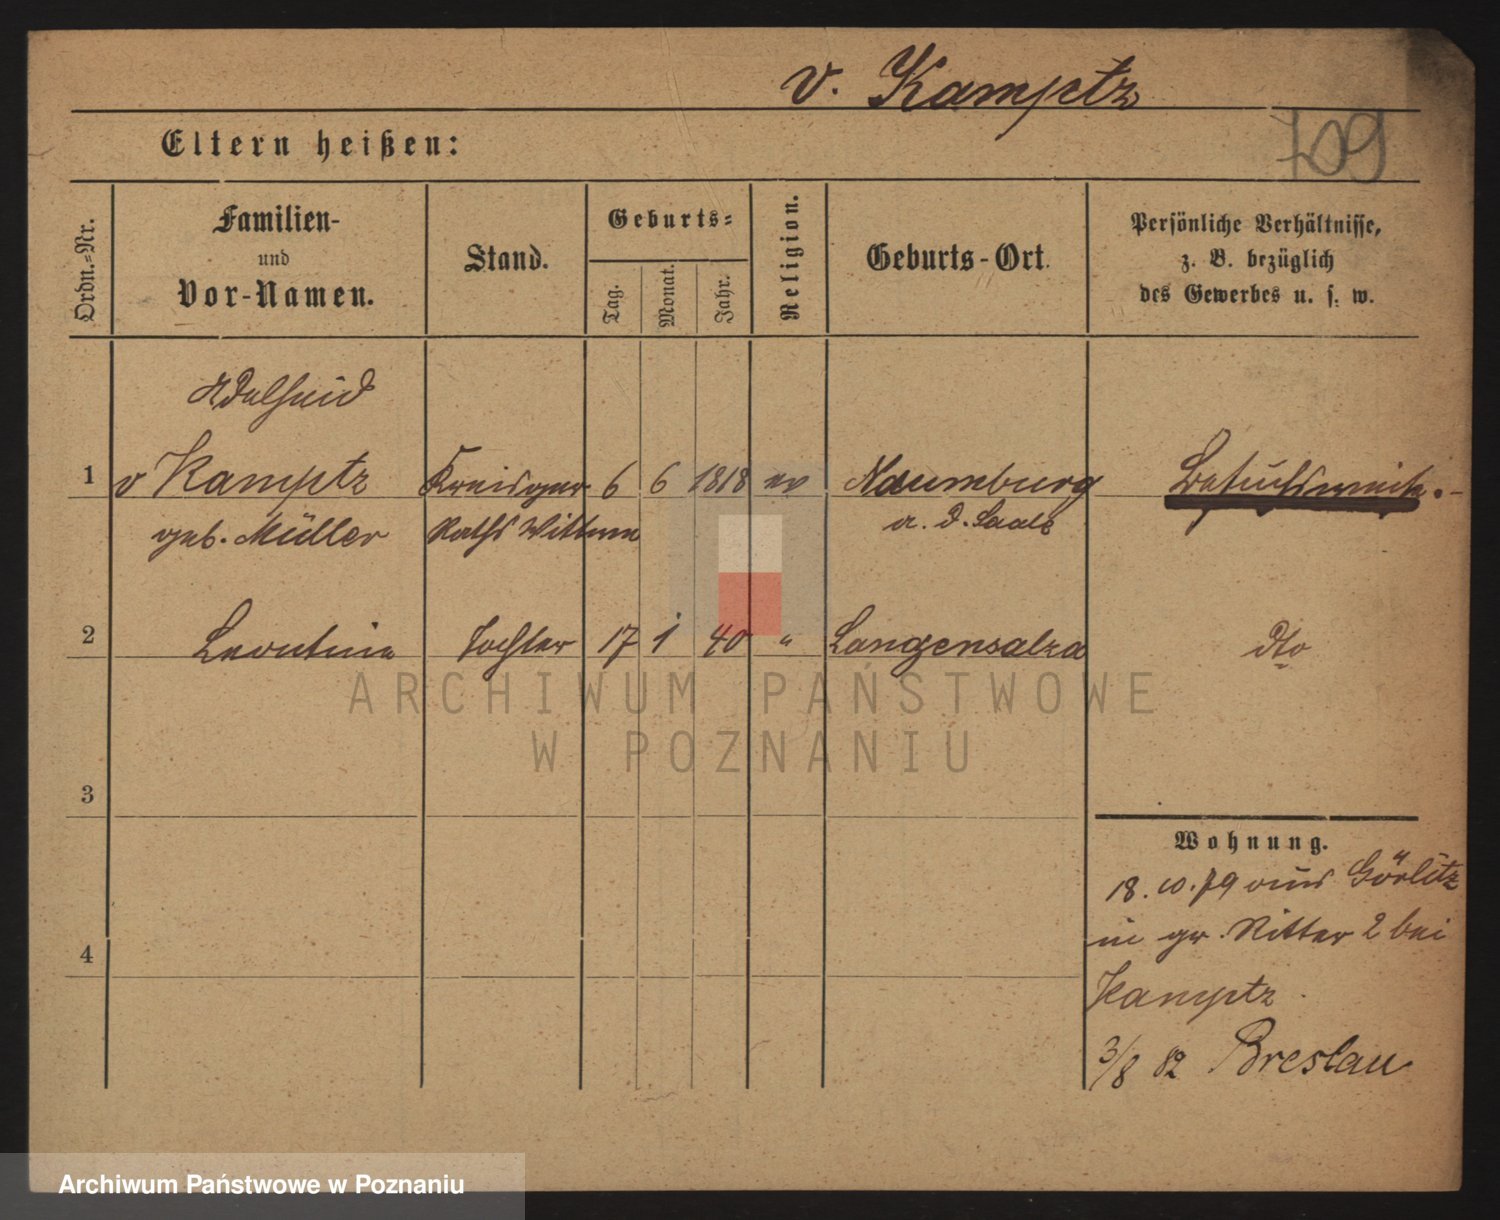 v. Kamptz
709
Eltern heißen:
Ordn.-Nr.
Familien-
und
Vor-Namen.
Stand.
Geburts-
Tag.
Monat.
Jahr.
Religion.
Geburts-Ort.
Persönliche Verhältnisse,
z. B. bezüglich
des Gewerbes u. s. w.
Adelheid
1 v Kamptz Kreisger 6 6 1818 ev Naumburg Besuchsweise.
geb. Müller Raths Wittwe a. d. Saale
2 Leontine Tochter 17 1 40 " Langensalza dto
3
4
Wohnung.
18. 10. 79 aus Görlitz
in gr. Ritter 2 bei
Kamptz
3/8 82 Breslau
ARCHIWUM PAŃSTWOWE
W POZNANIU
Archiwum Państwowe w Poznaniu